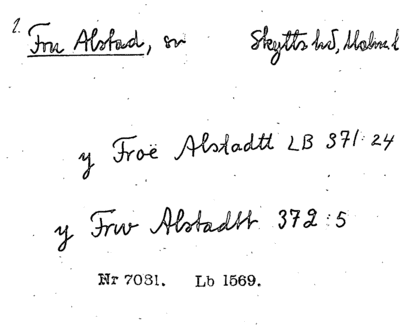 1. Fru Alstad, sn Skytts hd, Malm. l
y Froë Alstadtt LB 371:24
y Frw Alstadtt 372:5
Nr 7031. Lb 1569.